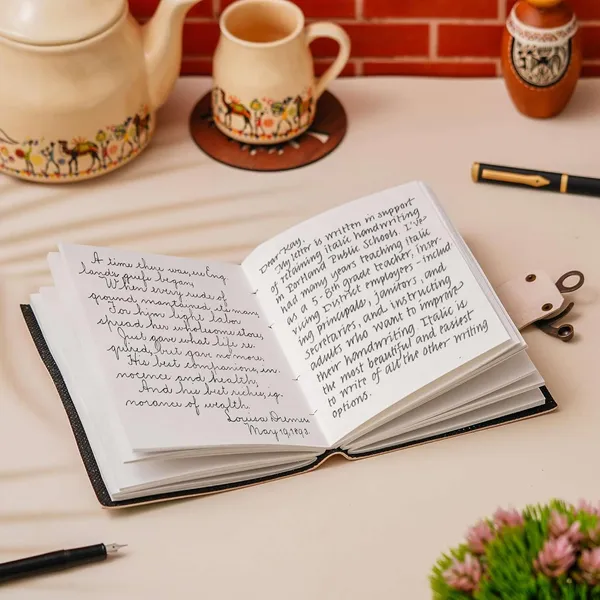 A time there was, ere Eng
lands griefs began,
When every rood of
ground maintained its man
For him light labor
spread her wholesome store,
Just gave what life re
quired, but gave no more.
His best companions, in
nocence and health,
And his best riches, ig
norance of wealth.
Louisa
May 19, 1893.
Dear Kay,
My letter is written in support
of retaining italic handwriting
in Portland Public Schools. I've
had many years teaching italic
as a 5-8th grade teacher, inser-
vicing District employers - includ-
ing principals, janitors, and
secretaries, and instructing
adults who want to improve
their handwriting. Italic is
the most beautiful and easiest
to write of all the other writing
options.